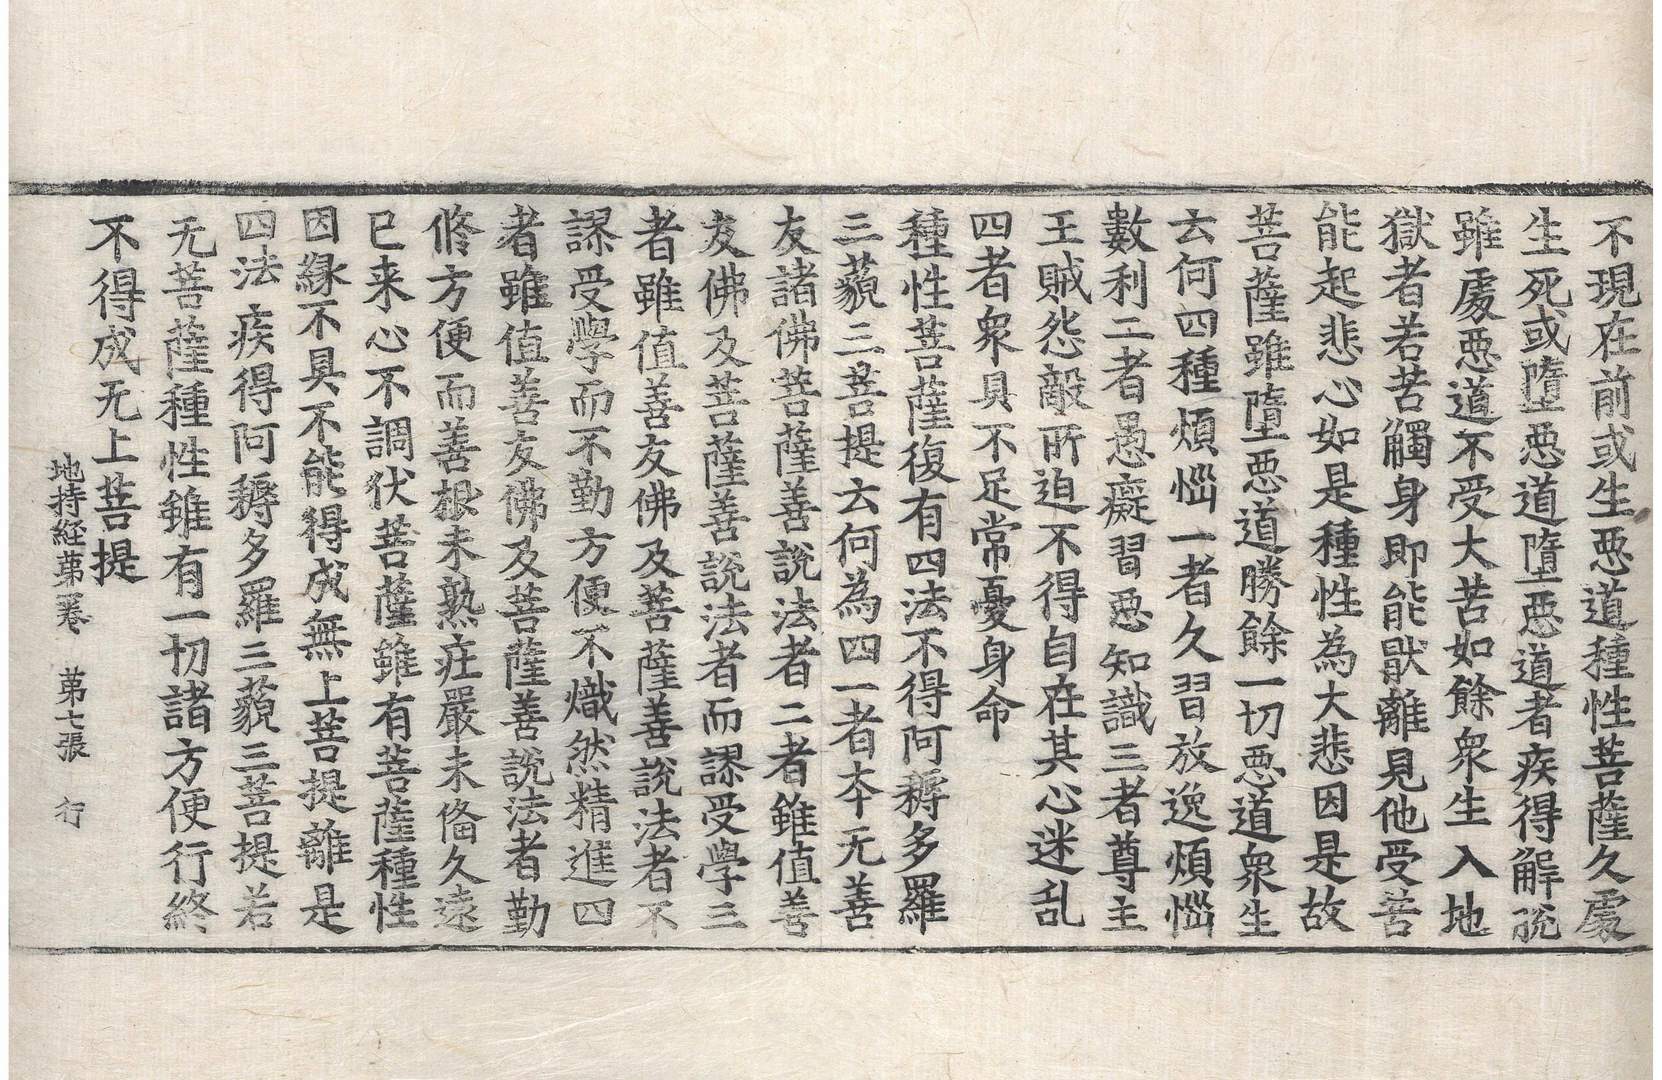 不現在前或生惡道種性菩薩久處
生死或墮惡道墮惡道者疾得解脫
雖處惡道不受大苦如餘衆生入地
獄者若苦觸身即能猒離見他受苦
能起悲心如是種性為大悲因是故
菩薩雖墮惡道勝餘一切惡道衆生
云何四種煩惱一者久習放逸煩惱
數利二者愚癡習惡知識三者尊主
王賊怨敵所迫不得自在其心迷乱
四者衆具不足常憂身命
種性菩薩復有四法不得阿耨多羅
三藐三菩提云何為四一者本无善
友諸佛菩薩善說法者二者雖值善
友佛及菩薩善說法者而謬受學三
者雖值善友佛及菩薩善說法者不
謬受學而不勤方便不熾然精進四
者雖值善友佛及菩薩善說法者勤
修方便而善根未熟莊嚴未俻久遠
已来心不調伏菩薩雖有菩薩種性
因緣不具不能得成無上菩提離是
四法疾得阿耨多羅三藐三菩提若
无菩薩種性雖有一切諸方便行終
不得成无上菩提
地持経苐一卷 苐七張 行